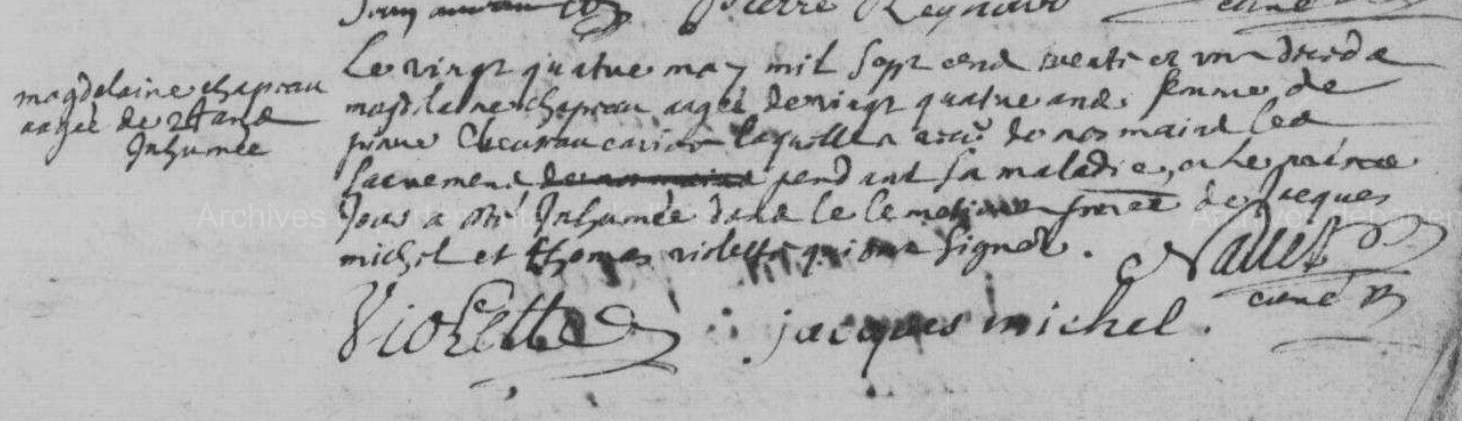 Pierre Reynaud
curé
magdelaine chapeau
aagée de 24 ans
Inhumée
Le vingt quatre may mil sept cens trente et un decedа
magdelaine chapeau aagée de vingt quatre ans femme de
pierre laquelle a receu de nos mains les
sacremens pendant sa maladie, et le
Jour a esté Inhumée dans le cemetiere de Jacques
michel et thomas violette qui ont signer.
Naulet
curé
Violette
jacques michel.